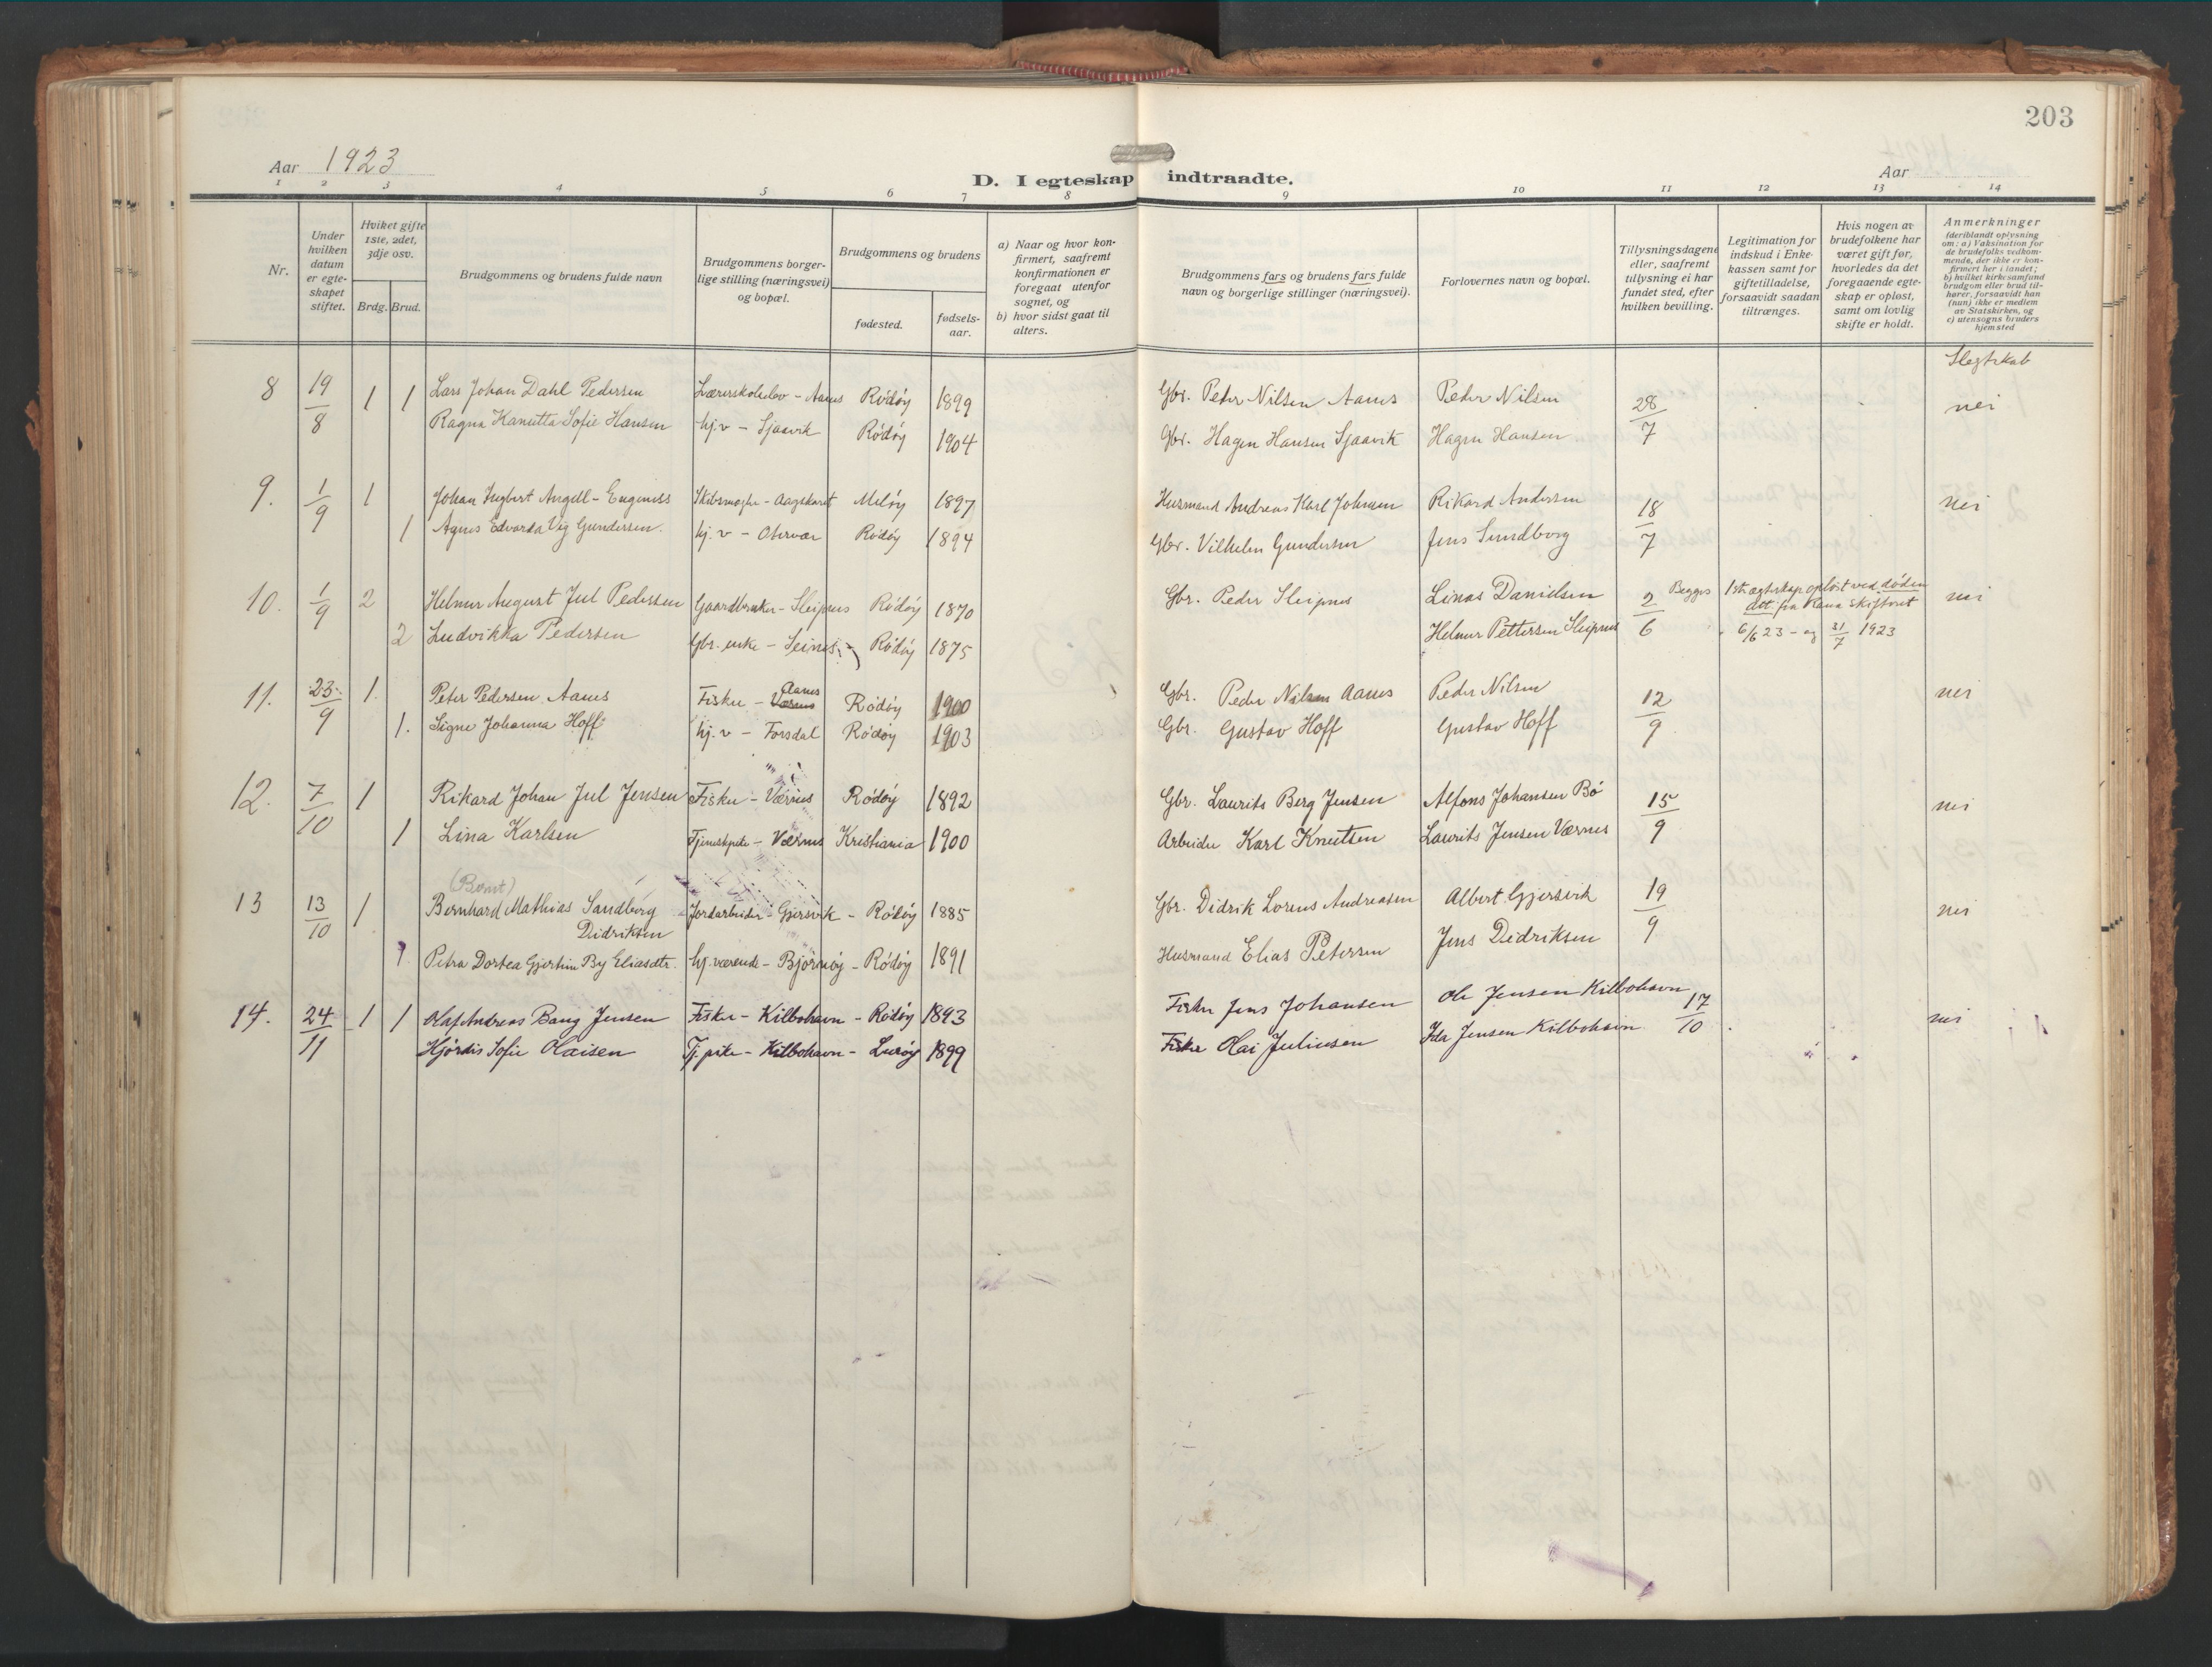 203
Aar 1923
D. I egteskap indtraadte.
Aar
1 2 3 4 5 6 7 8 9 10 11 12 13 14
Nr.
Under hvilken datum er egteskapet stiftet.
Hvilket gifte 1ste, 2det, 3dje osv.
Brdg. Brud.
Brudgommens og brudens fulde navn
Brudgommens borgerlige stilling (næringsvei) og bopæl.
Brudgommens og brudens
fødested.
fødselsaar.
a) Naar og hvor konfirmert, saafremt konfirmationen er foregaat utenfor sognet, og
b) hvor sidst gaat til alters.
Brudgommens fars og brudens fars fulde navn og borgerlige stillinger (næringsvei).
Forlovernes navn og bopæl.
Tillysningsdagene eller, saafremt tillysning ei har fundet sted, efter hvilken bevilling.
Legitimation for indskud i Enkekassen samt for giftetilladelse, forsaavidt saadan tiltrænges.
Hvis nogen av brudefolkene har været gift før, hvorledes da det foregaaende egteskap er opløst, samt om lovlig skifte er holdt.
Anmerkninger (deriblandt oplysning om: a) Vaksination for de brudefolks vedkommende, der ikke er konfirmert her i landet; b) hvilket kirkesamfund brudgom eller brud tilhører, forsaavidt han (hun) ikke er medlem av Statskirken, og c) utensogns bruders hjemsted
Slegtskab
8 19/8 1 1 Lars Johan Dahl Pedersen Lærerskoleelev - Aanes Rødøy 1899 Gbr. Peder Nilsen Aanes Peder Nilsen 28/7 nei
Ragna Kanutta Sofie Hansen hj.v - Sjaavik Rødøy 1904 Gbr. Hagen Hansen Sjaavik Hagen Hansen
9. 1/9 1 Johan Ingbert Angell-Eugenuss - Aagskaret Meløy 1897 Husmand Andreas Karl Johnsen Rikard Andersen 18/7 nei
1 Agnes Edvarda Vig Gundersen. hj.v - Otervær Rødøy 1894 Gbr. Vilhelm Gundersen Jens Sundborg
10. 1/9 2 Helmer August Jul Pedersen Gaardbruker - Sleipnes Rødøy 1870 Gbr. Peder Sleipnes Linas Danielsen 2/6 Begges 1ste egteskap opløst ved døden nei
det. fra Rana skifteret
2 Ludvikka Pedersen Gbr. enke - Seines Rødøy 1875 Helmer Pettersen Sleipnes 6/6 23 - og 31/7 1923
11. 23/9 1. Peter Pedersen Aanes Fisker - Værnes Aanes Rødøy 1900 Gbr. Peder Nilsen Aanes Peder Nilsen 12/9 nei
1. Signe Johanna Hoff hj.v - Forsdal Rødøy 1903 Gbr. Gustav Hoff Gustav Hoff
12. 7/10 1 Rikard Johan Jul Jensen Fisker - Værnes Rødøy 1892 Gbr. Laurits Berg Jensen Alfons Johansen Bø 15/9 nei
1 Lina Karlsen Tjenestpike - Værnes Kristiania 1900 Arbeider Karl Knutsen Laurits Jensen Værnes
(Bernt)
13 13/10 1 Bernhard Mathias Sandberg Jordarbeider - Gjersvik - Rødøy 1885 Gbr. Didrik Lorens Andreasen Albert Gjersvik 19/9 nei
Didriksen
1 Petra Dortea Gjertine By Eliasdtr. hj.værende - Bjørnøy - Rødøy 1891 Husmand Elias Petersen Jens Didriksen
14. 24/11 1 1 Olaf Andreas Bang Jensen Fisker - Kilbohavn - Rødøy 1893 Fisker Jens Johansen Ole Jensen Kilbohavn 17/10 nei
Hjørdis Sofie Olaisen Tj.pike - Kilbohavn - Lurøy 1899 Fisker Olai Juliusen Jensen Kilbohavn